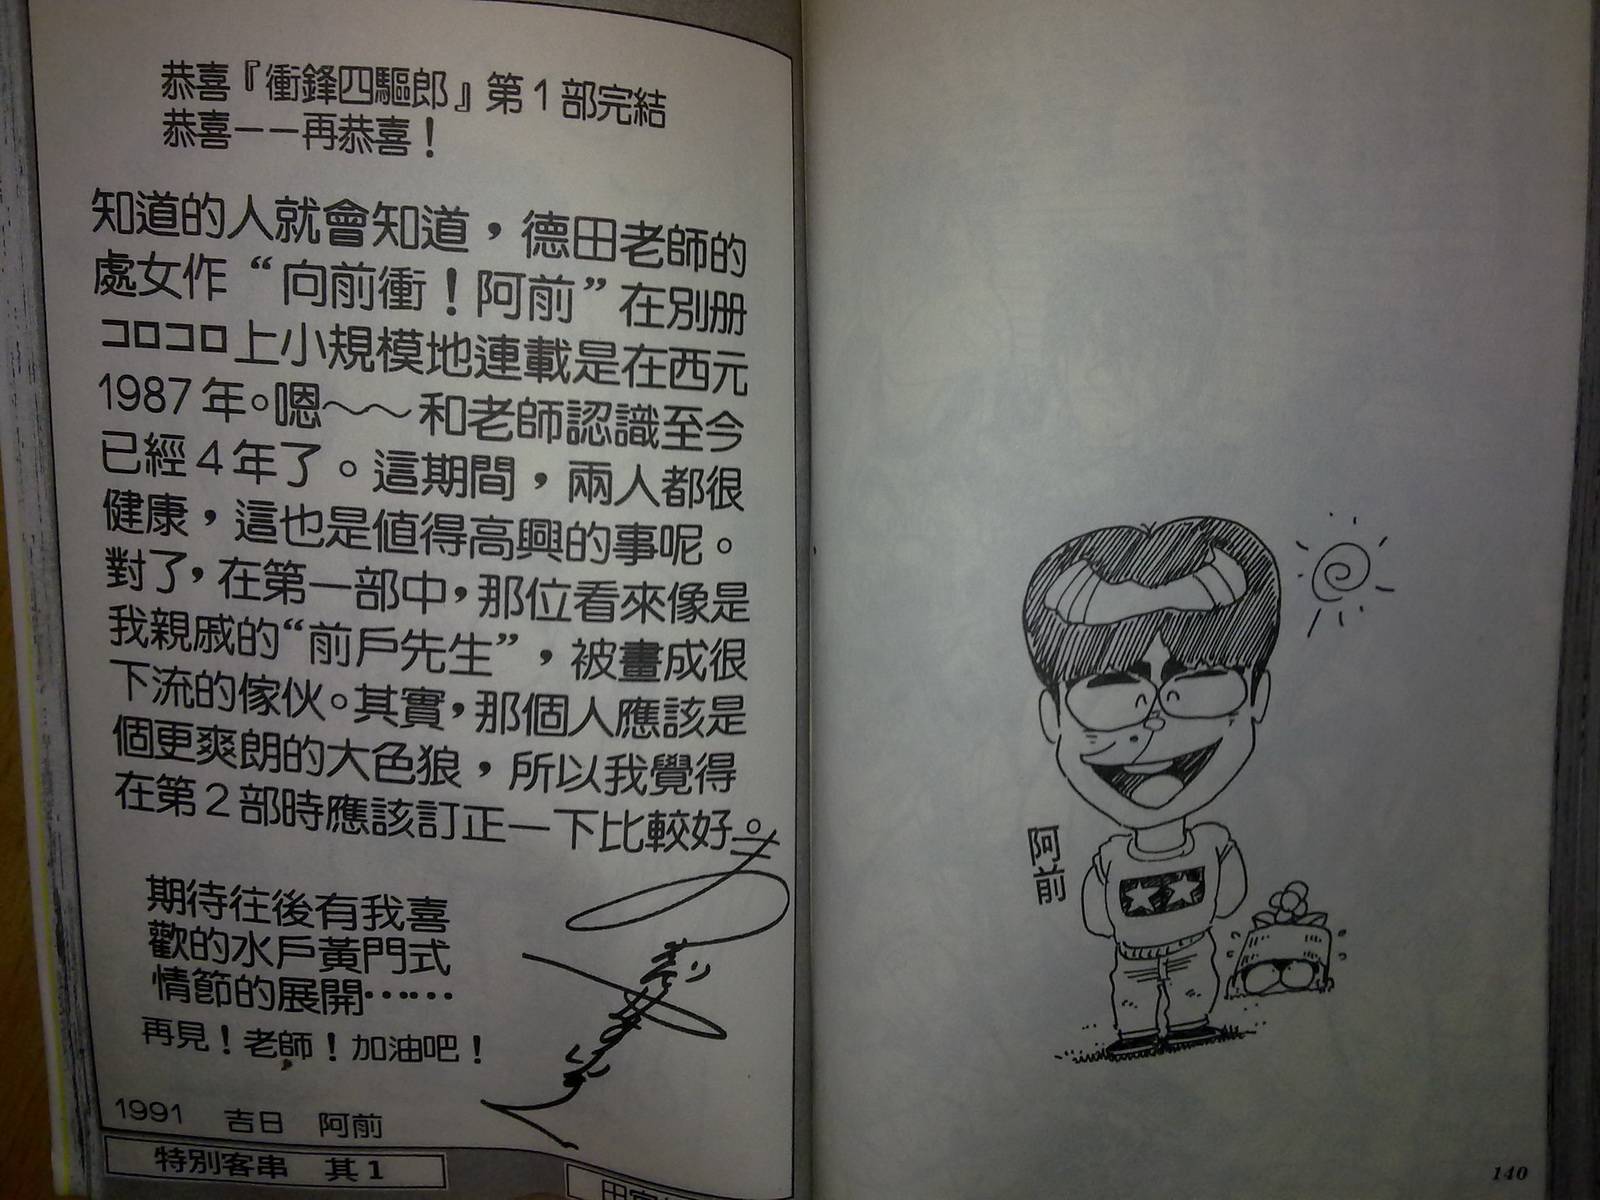 恭喜『衝鋒四驅郎』第1部完結
恭喜——再恭喜！
知道的人就會知道，德田老師的
處女作“向前衝！阿前”在別册
コロコロ上小規模地連載是在西元
1987年。嗯～～和老師認識至今
已經4年了。這期間，兩人都很
健康，這也是值得高興的事呢。
對了，在第一部中，那位看來像是
我親戚的“前戶先生”，被畫成很
下流的傢伙。其實，那個人應該是
個更爽朗的大色狼，所以我覺得
在第2部時應該訂正一下比較好。
期待往後有我喜
歡的水戶黃門式
情節的展開……
再見！老師！加油吧！
1991 吉日 阿前
特別客串 其1
阿前
140